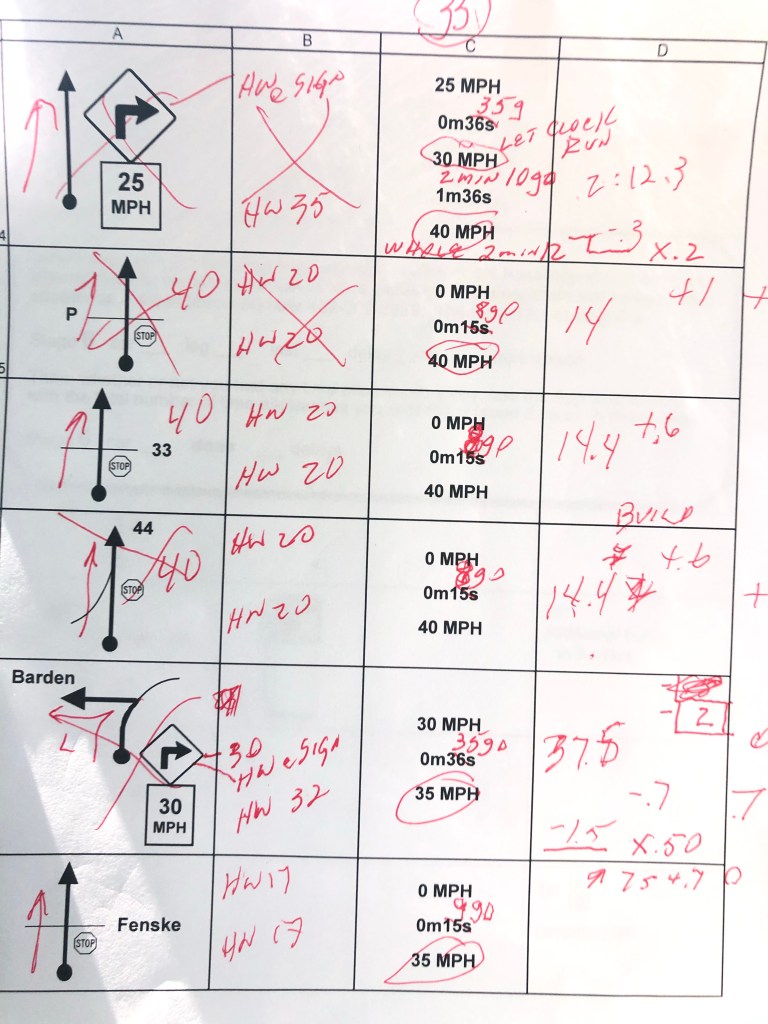 33
A B C D
25 MPH
HW e SIGN
HW 35
25 MPH
35 go
0m36s
LET CLOCK RUN
30 MPH
2 MIN 10 go
1m36s
40 MPH
WHOLE 2 min 12
2:12.3
.3
X.2
4
P
STOP
40
HW 20
HW 20
0 MPH
8 go
0m15s
40 MPH
14
+1
+
5
33
STOP
40
HW 20
HW 20
0 MPH
8 go
0m15s
40 MPH
14.4
+.6
BUILD
44
STOP
40
HW 20
HW 20
0 MPH
8 go
0m15s
40 MPH
14.4
+.6
+
Barden
L
30 MPH
30
HW e SIGN
HW 32
30 MPH
35 go
0m36s
35 MPH
37.5
- 2
-.7
.7
-1.5
X.50
Fenske
STOP
HW 17
HW 17
0 MPH
9 go
0m15s
35 MPH
754.7
0